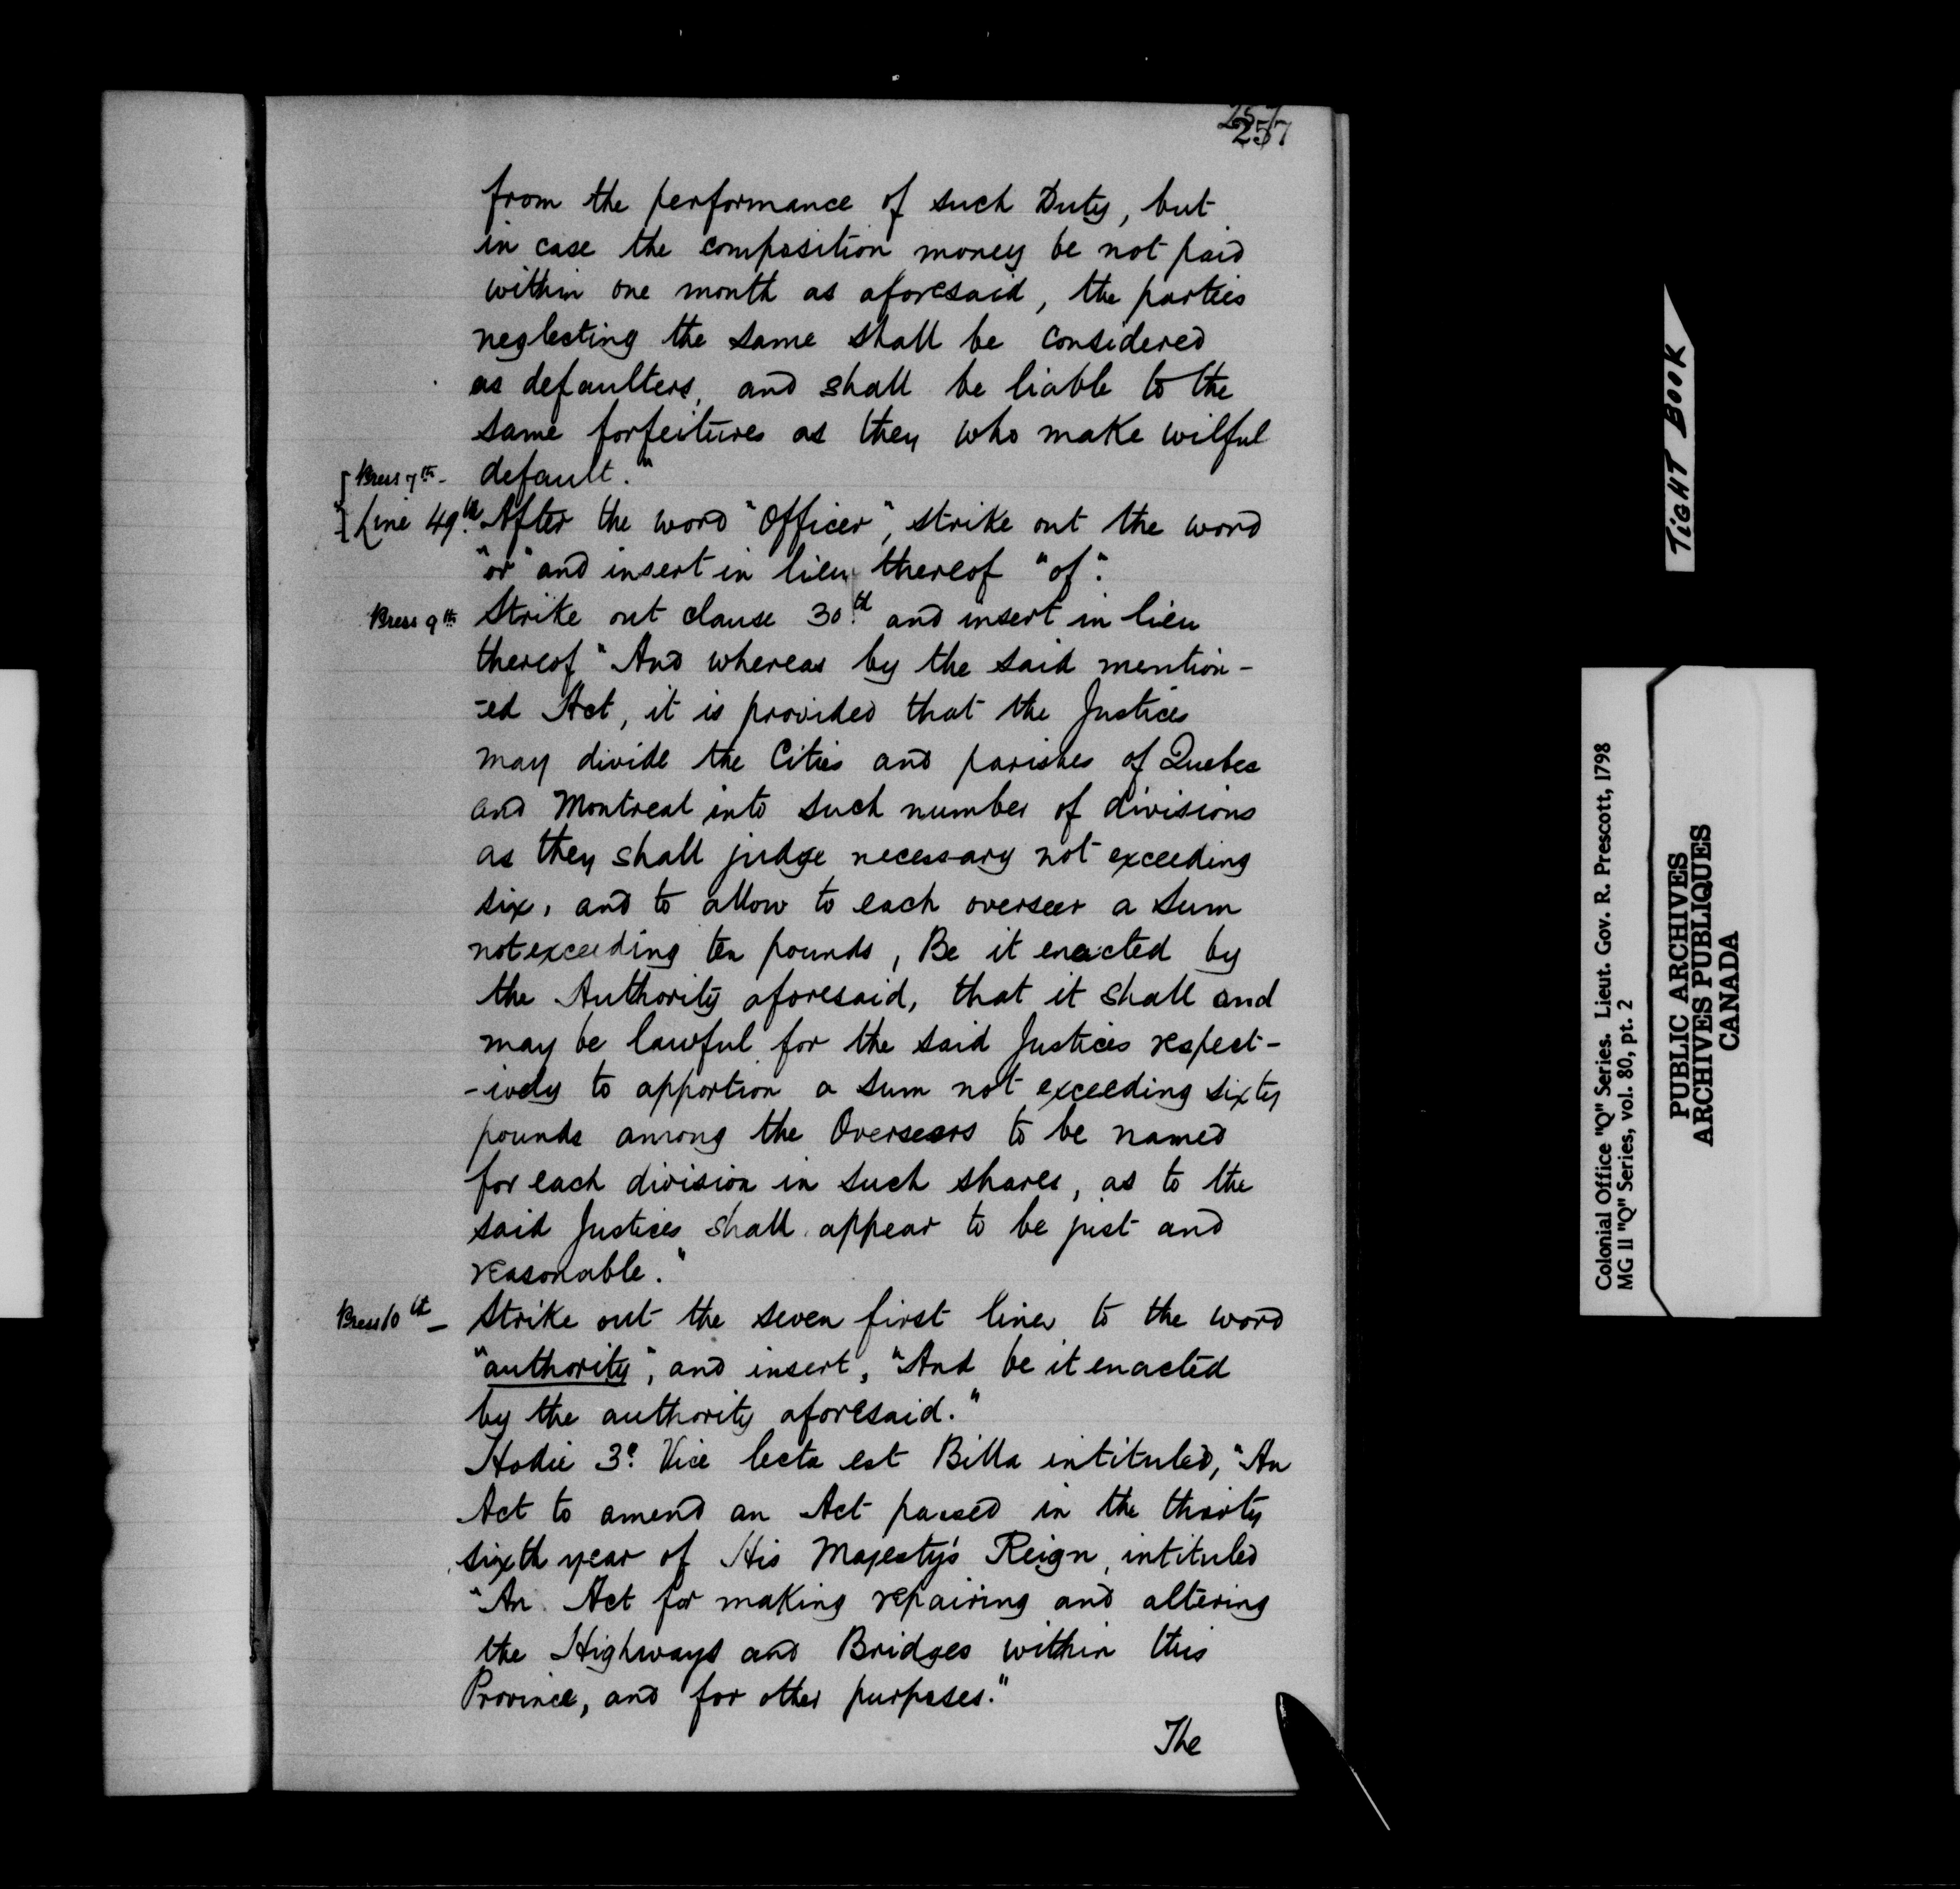 257
257
from the performance of such Duty, but
in case the composition money be not paid
within one month as aforesaid, the parties
neglecting the same shall be considered
as defaulters, and shall be liable to the
same forfeitures as they who make wilful
Press 7th - default."
Line 49th. After the word "Officer", strike out the word
"or" and insert in lieu thereof "of".
Press 9th Strike out clause 30th. and insert in lieu
thereof "And whereas by the said mention-
-ed Act, it is provided that the Justices
may divide the Cities and parishes of Quebec
and Montreal into such number of divisions
as they shall judge necessary not exceeding
six, and to allow to each overseer a sum
not exceeding ten pounds, Be it enacted by
the Authority aforesaid, that it shall and
may be lawful for the said Justices respect-
-ively to apportion a sum not exceeding sixty
pounds among the Overseers to be named
for each division in such shares, as to the
said Justices shall appear to be just and
reasonable."
Press 10th - Strike out the seven first lines to the word
"authority", and insert, "And be it enacted
by the authority aforesaid."
Hodie 3a. Vice lecta est Billa intituled, "An
Act to amend an Act passed in the thirty
sixth year of His Majesty's Reign, intituled
"An Act for making repairing and altering
the Highways and Bridges within this
Province, and for other purposes."
The
TIGHT BOOK
Colonial Office "Q" Series. Lieut. Gov. R. Prescott, 1798
MG 11 "Q" Series, vol. 80, pt. 2
PUBLIC ARCHIVES
ARCHIVES PUBLIQUES
CANADA